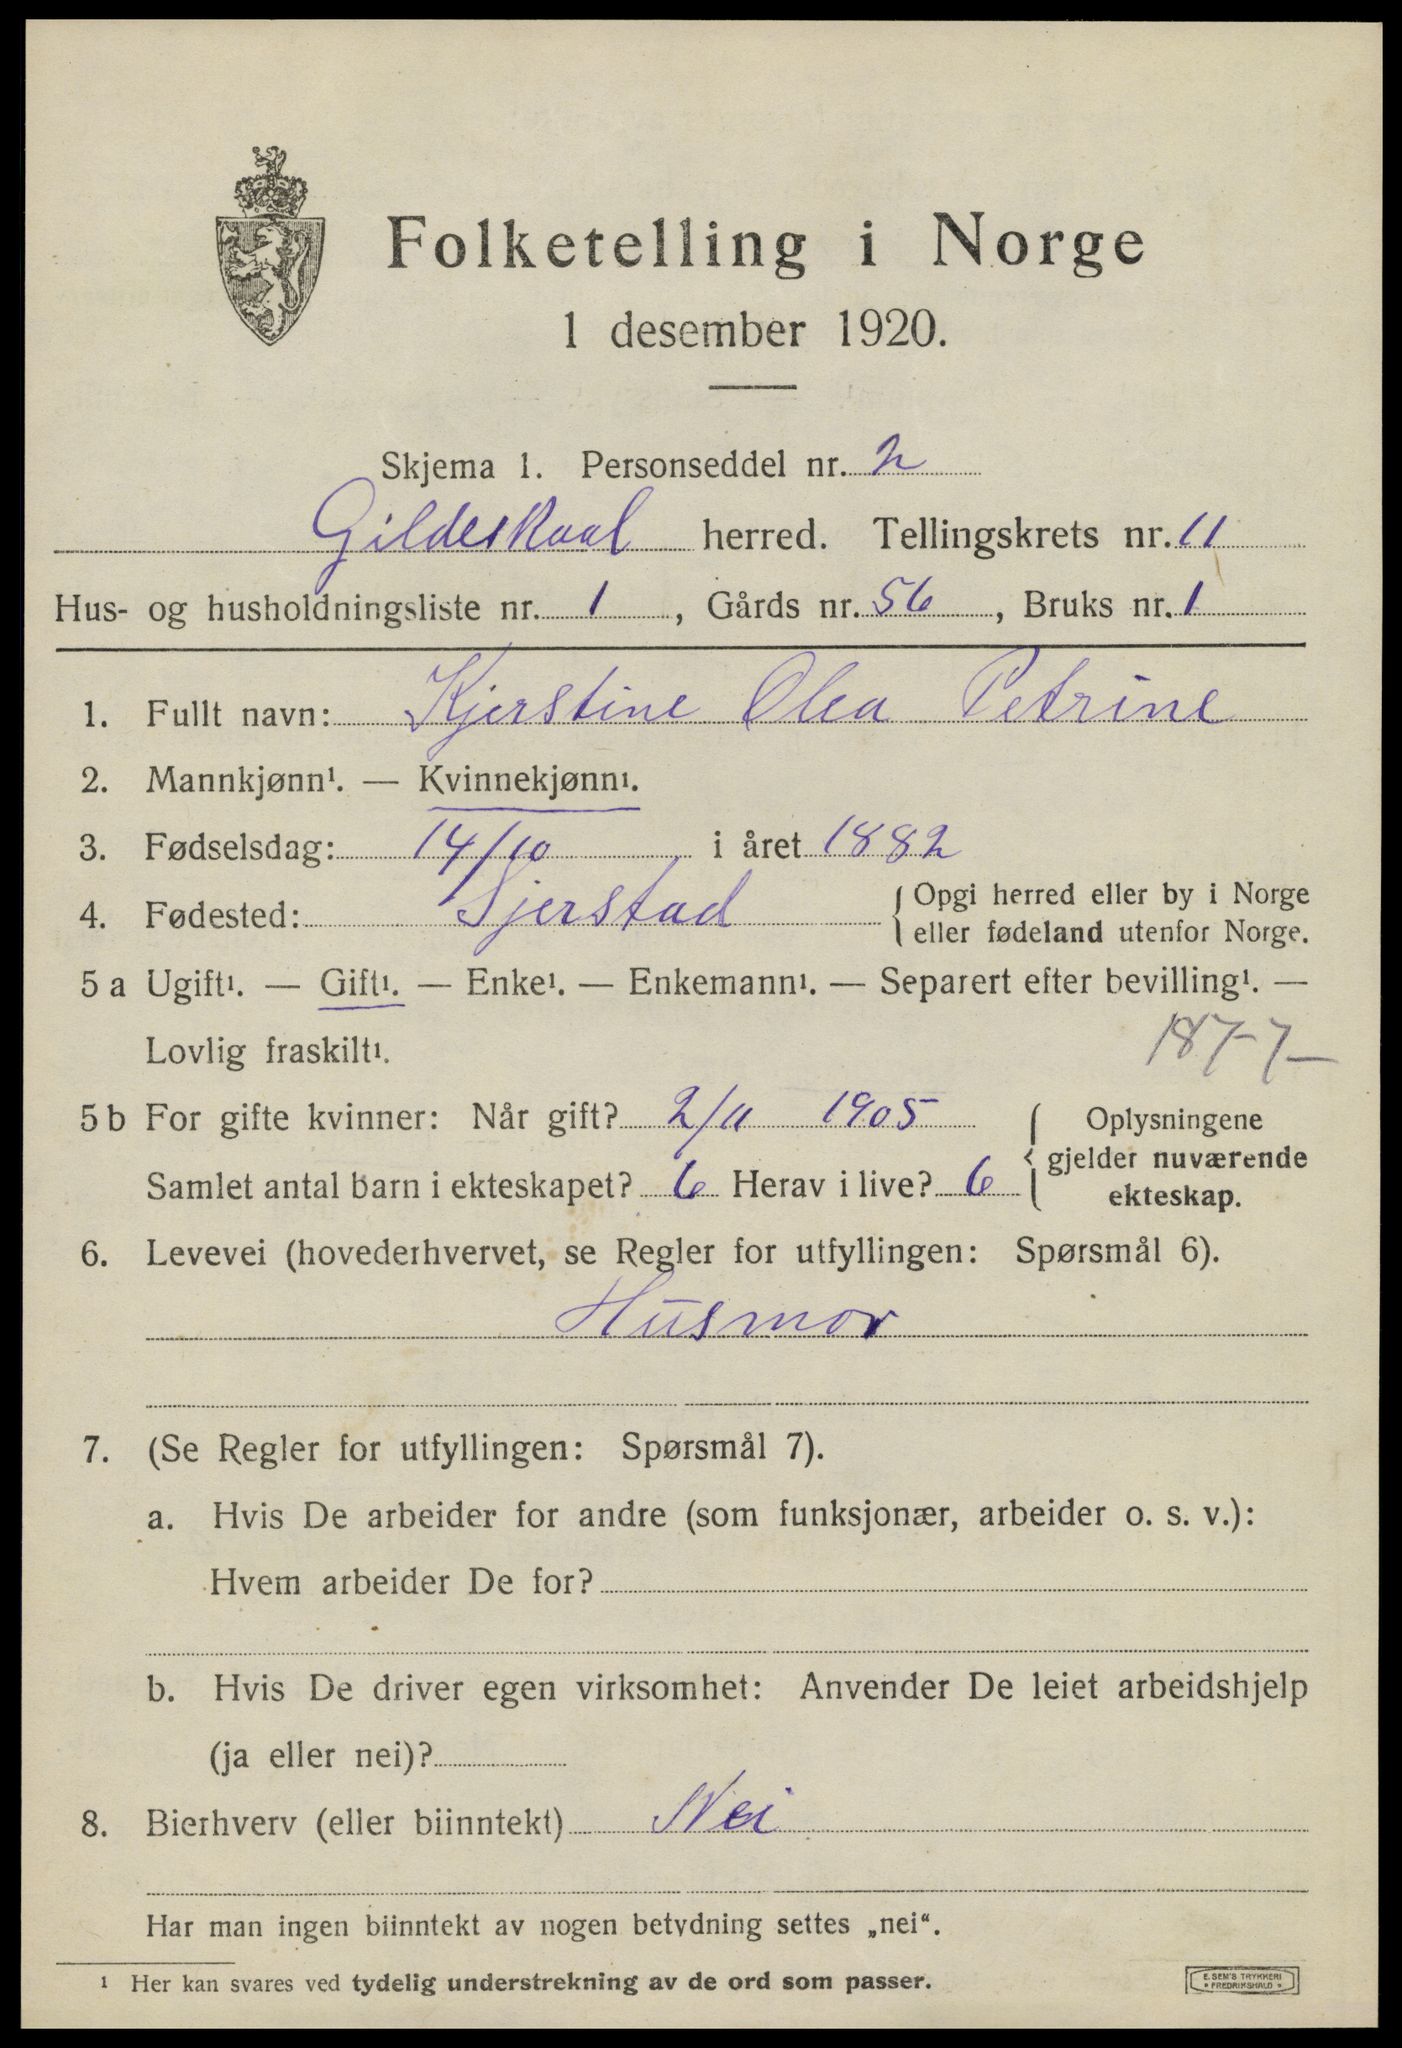 Folketelling i Norge
1 desember 1920.
Skjema 1. Personseddel nr. 2
Gildeskaal herred. Tellingskrets nr. 11
Hus- og husholdningsliste nr. 1, Gårds nr. 56, Bruks nr. 1
1. Fullt navn: Kjerstine Olea Petrine
2. Mannkjønn¹. — Kvinnekjønn¹.
3. Fødselsdag: 14/10 i året 1882
4. Fødested: Sjerstad { Opgi herred eller by i Norge
eller fødeland utenfor Norge.
5 a Ugift¹. — Gift¹. — Enke¹. — Enkemann¹. — Separert efter bevilling¹. —
Lovlig fraskilt¹. 1877
5 b For gifte kvinner: Når gift? 2/11 1905 { Oplysningene
gjelder nuværende
Samlet antal barn i ekteskapet? 6 Herav i live? 6 ekteskap.
6. Levevei (hovederhvervet, se Regler for utfyllingen: Spørsmål 6).
Husmor
7. (Se Regler for utfyllingen: Spørsmål 7).
a. Hvis De arbeider for andre (som funksjonær, arbeider o. s. v.):
Hvem arbeider De for?
b. Hvis De driver egen virksomhet: Anvender De leiet arbeidshjelp
(ja eller nei)?
8. Bierhverv (eller biinntekt) Nei
Har man ingen biinntekt av nogen betydning settes „nei“.
¹ Her kan svares ved tydelig understrekning av de ord som passer.
E. SEM'S TRYKKERI
• FREDRIKSHALD •